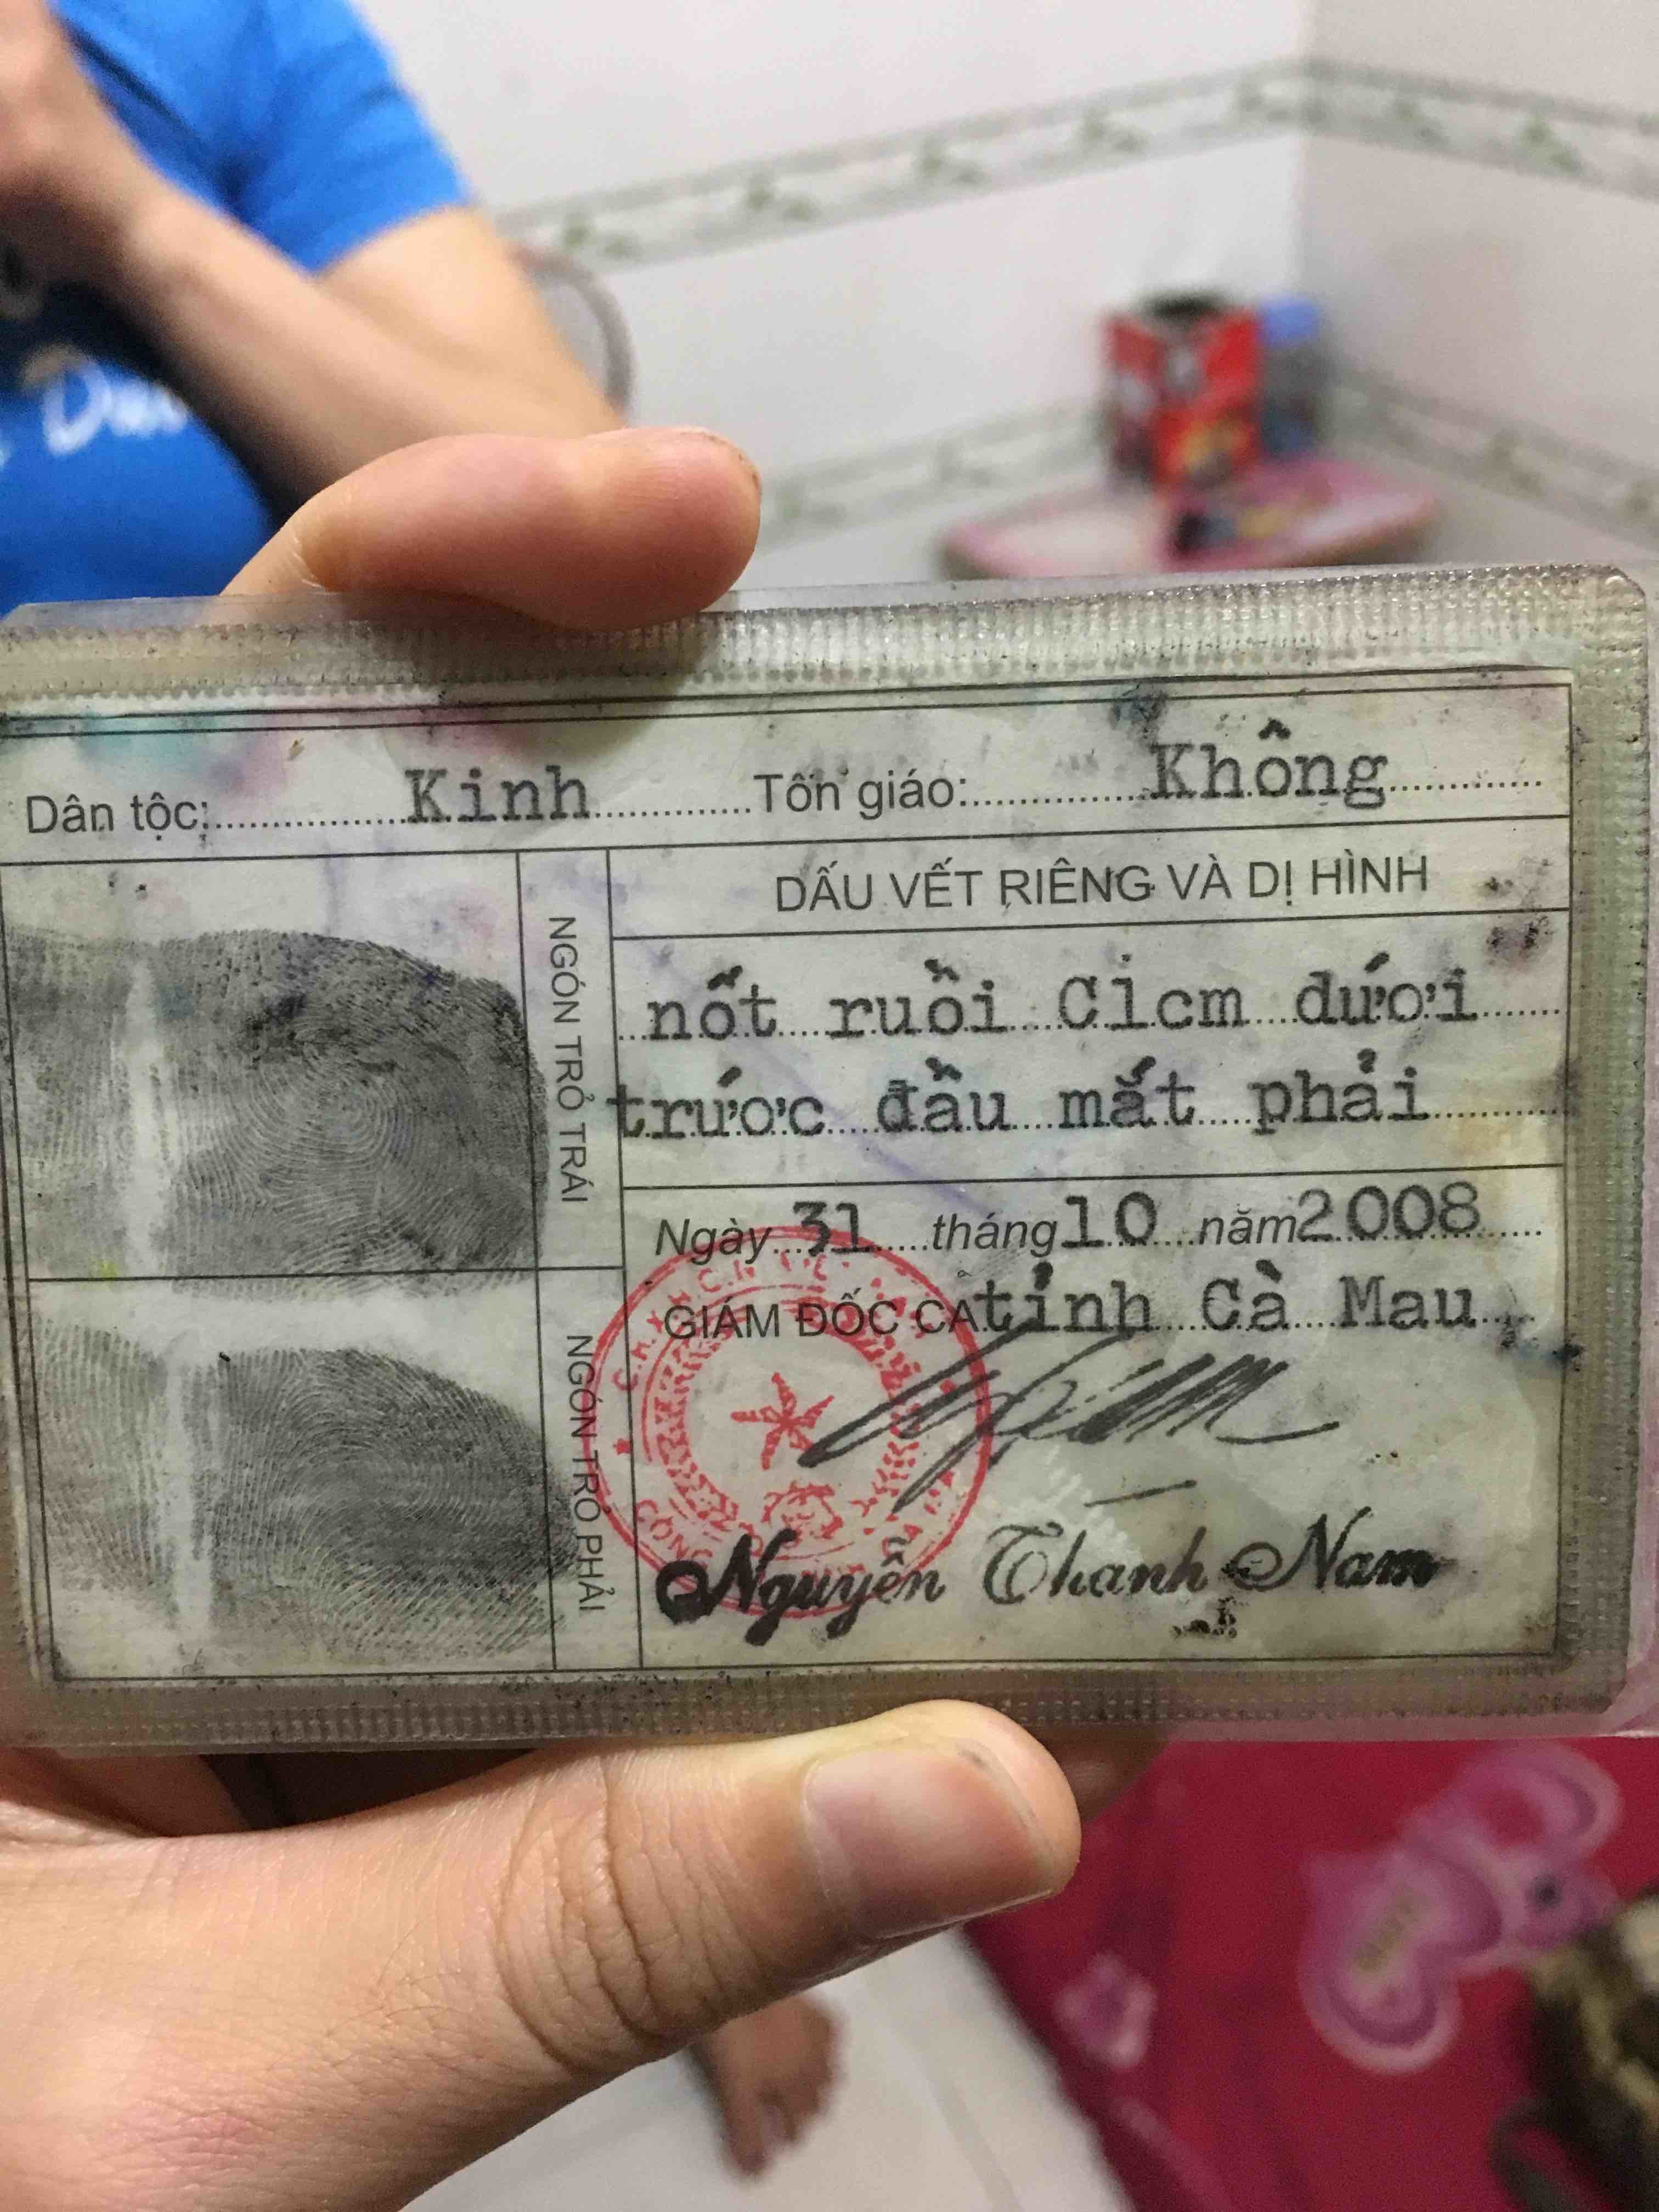 Dân tộc: Kinh Tôn giáo: Không
DẤU VẾT RIÊNG VÀ DỊ HÌNH
NGÓN TRỎ TRÁI
nốt ruồi C1cm dưới
trước đầu mắt phải
Ngày 31 tháng 10 năm 2008
GIÁM ĐỐC CA tỉnh Cà Mau
NGÓN TRỎ PHẢI
Nguyễn Thanh Nam